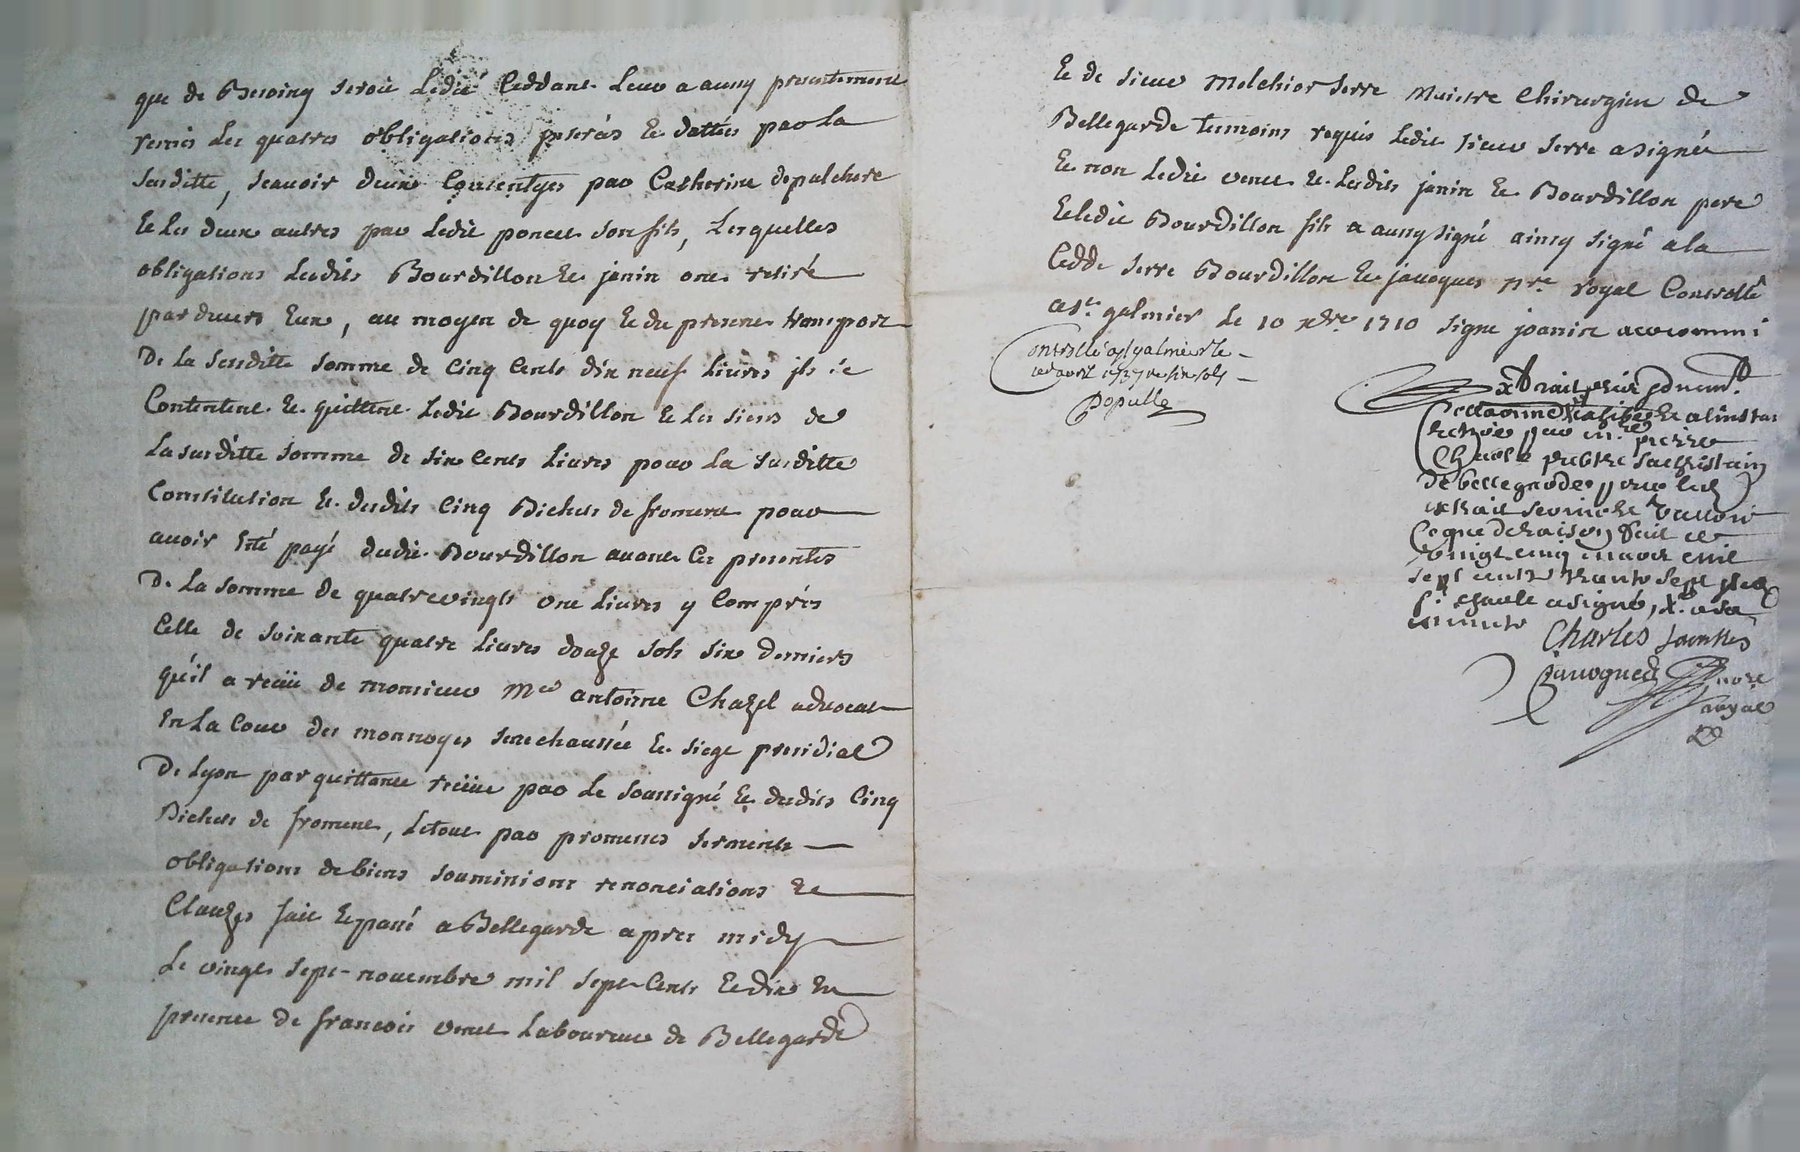 que de Besoing seroit Ledit Ceddant Leur a aussy presentement
remis Les quatres obligations dattées par La
susditte, scavoir deux Consenties par Catherine depulchere
Et Les deux autres par Ledit poncet son fils, Lesquelles
obligations Lesdits Bourdillon Et janin ont retiré
pardevers Eux, au moyen de quoy Et du present transport
De La susditte somme de Cinq Cents dix neuf Livres ils se
Contentent Et quittent Ledit Bourdillon Et Les siens de
La susditte somme de six Cents Livres pour La susditte
Constitution Et desdits Cinq Bichets de froment pour
avoir Eté payé dudit Bourdillon avant Ces presentes
De La somme de quatrevingts onze Livres y Compris
Celle de soixante quatre Livres douze sols six deniers
qu'il a receu de monsieur Me antoinne Chazel advocat
En La Cour des monnoyes senechaussée Et siege presidial
De Lyon par quittance receüe par Le soussigné Et desdits Cinq
Bichets de froment, Letout par promesses serments
obligations de biens soumissions renonciations Et
Clauzes fait Et passé a Bellegarde apres midy
Le vingt sept novembre mil sept Cents Et dix En
presence de francois venet Laboureur de Bellegarde
Et de sieur Melchior serre Maistre Chirurgien de
Bellegarde temoins requis Ledit sieur serre a signé
Et non Ledit venet Et Lesdits janin Et Bourdillon pere
Et Ledit Bourdillon fils a aussy signé ainsy signé a la
Cedde serre Bourdillon Et javogues nre royal Controllé
a st galmier Le 10 xbre 1710 signe joanin avocommi
Controllé a st galmier Le
avril 1737 six sols
Populle
Extrait
par me pierre
Charle prebtre sachristain
de bellegarde pour led
extrait servir Et valloir
Ce que de raison fait ce
vingt cinq mars mil
sept cents trente sept led
sr Charle a signé, a sa
minute
Charles
Javogues nore
royal